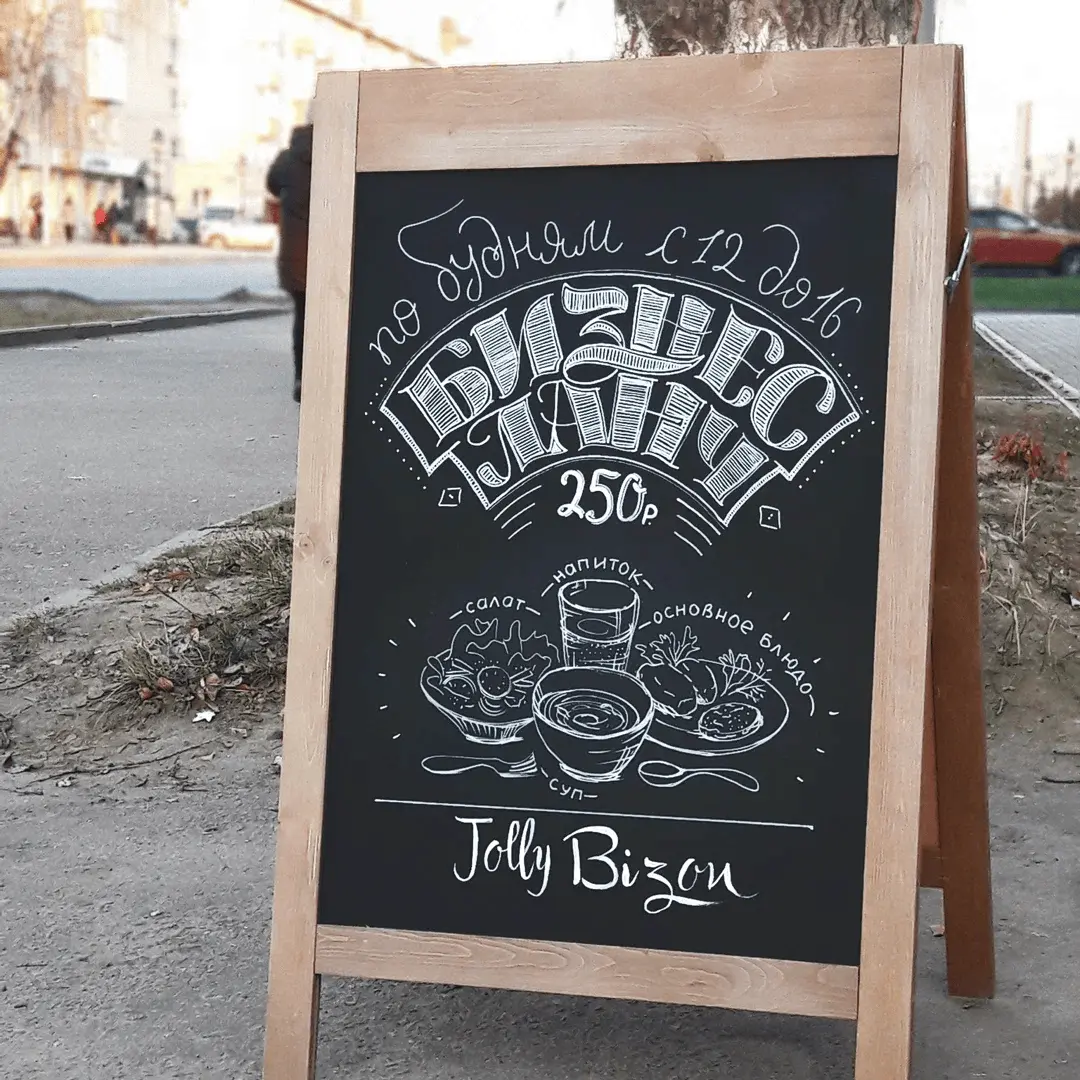 по будням с 12 до 16
БИЗНЕС
ЛАНЧ
250р.
напиток
салат
основное блюдо
суп
Jolly Bizon